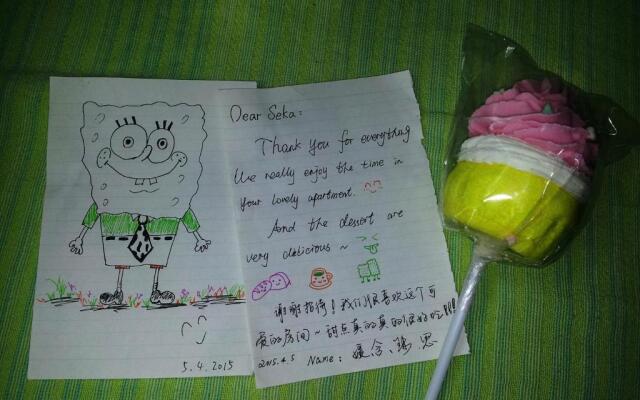 5.4.2015
Dear Seka:
Thank you for everything
We really enjoy the time in
your lovely apartment.
And the dessert are
very delicious ~
谢谢招待！我们很喜欢这个可
爱的房间~甜点真的真的很好吃!!!
2015.4.5 Name: